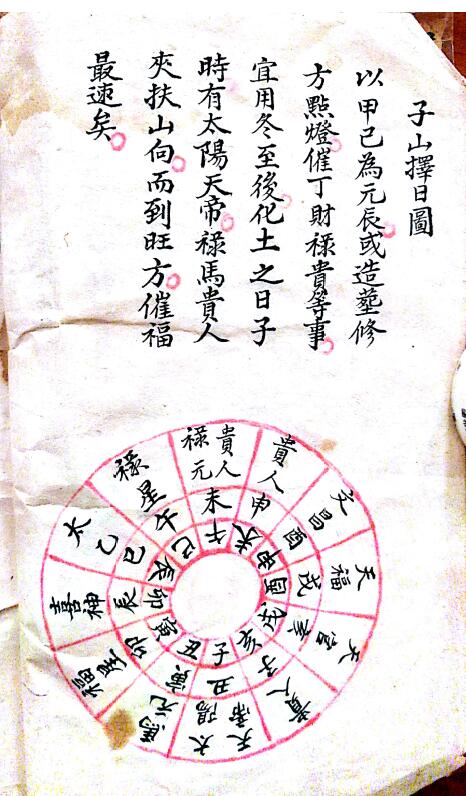 子山擇日圖
以甲己為元辰或造塟修
方點燈催丁財祿貴等事
宜用冬至後化土之日子
時有太陽天帝祿馬貴人
夾扶山向而到旺方催福
最速矣
貴人
祿元
未
午
貴人
申
未
文昌
酉
申
天福
戌
酉
天官
亥
戌
貴人
子
亥
天帝
太陽
丑
子
馬元
寅
丑
福星
卯
寅
喜神
辰
卯
太乙
巳
辰
祿星
午
巳